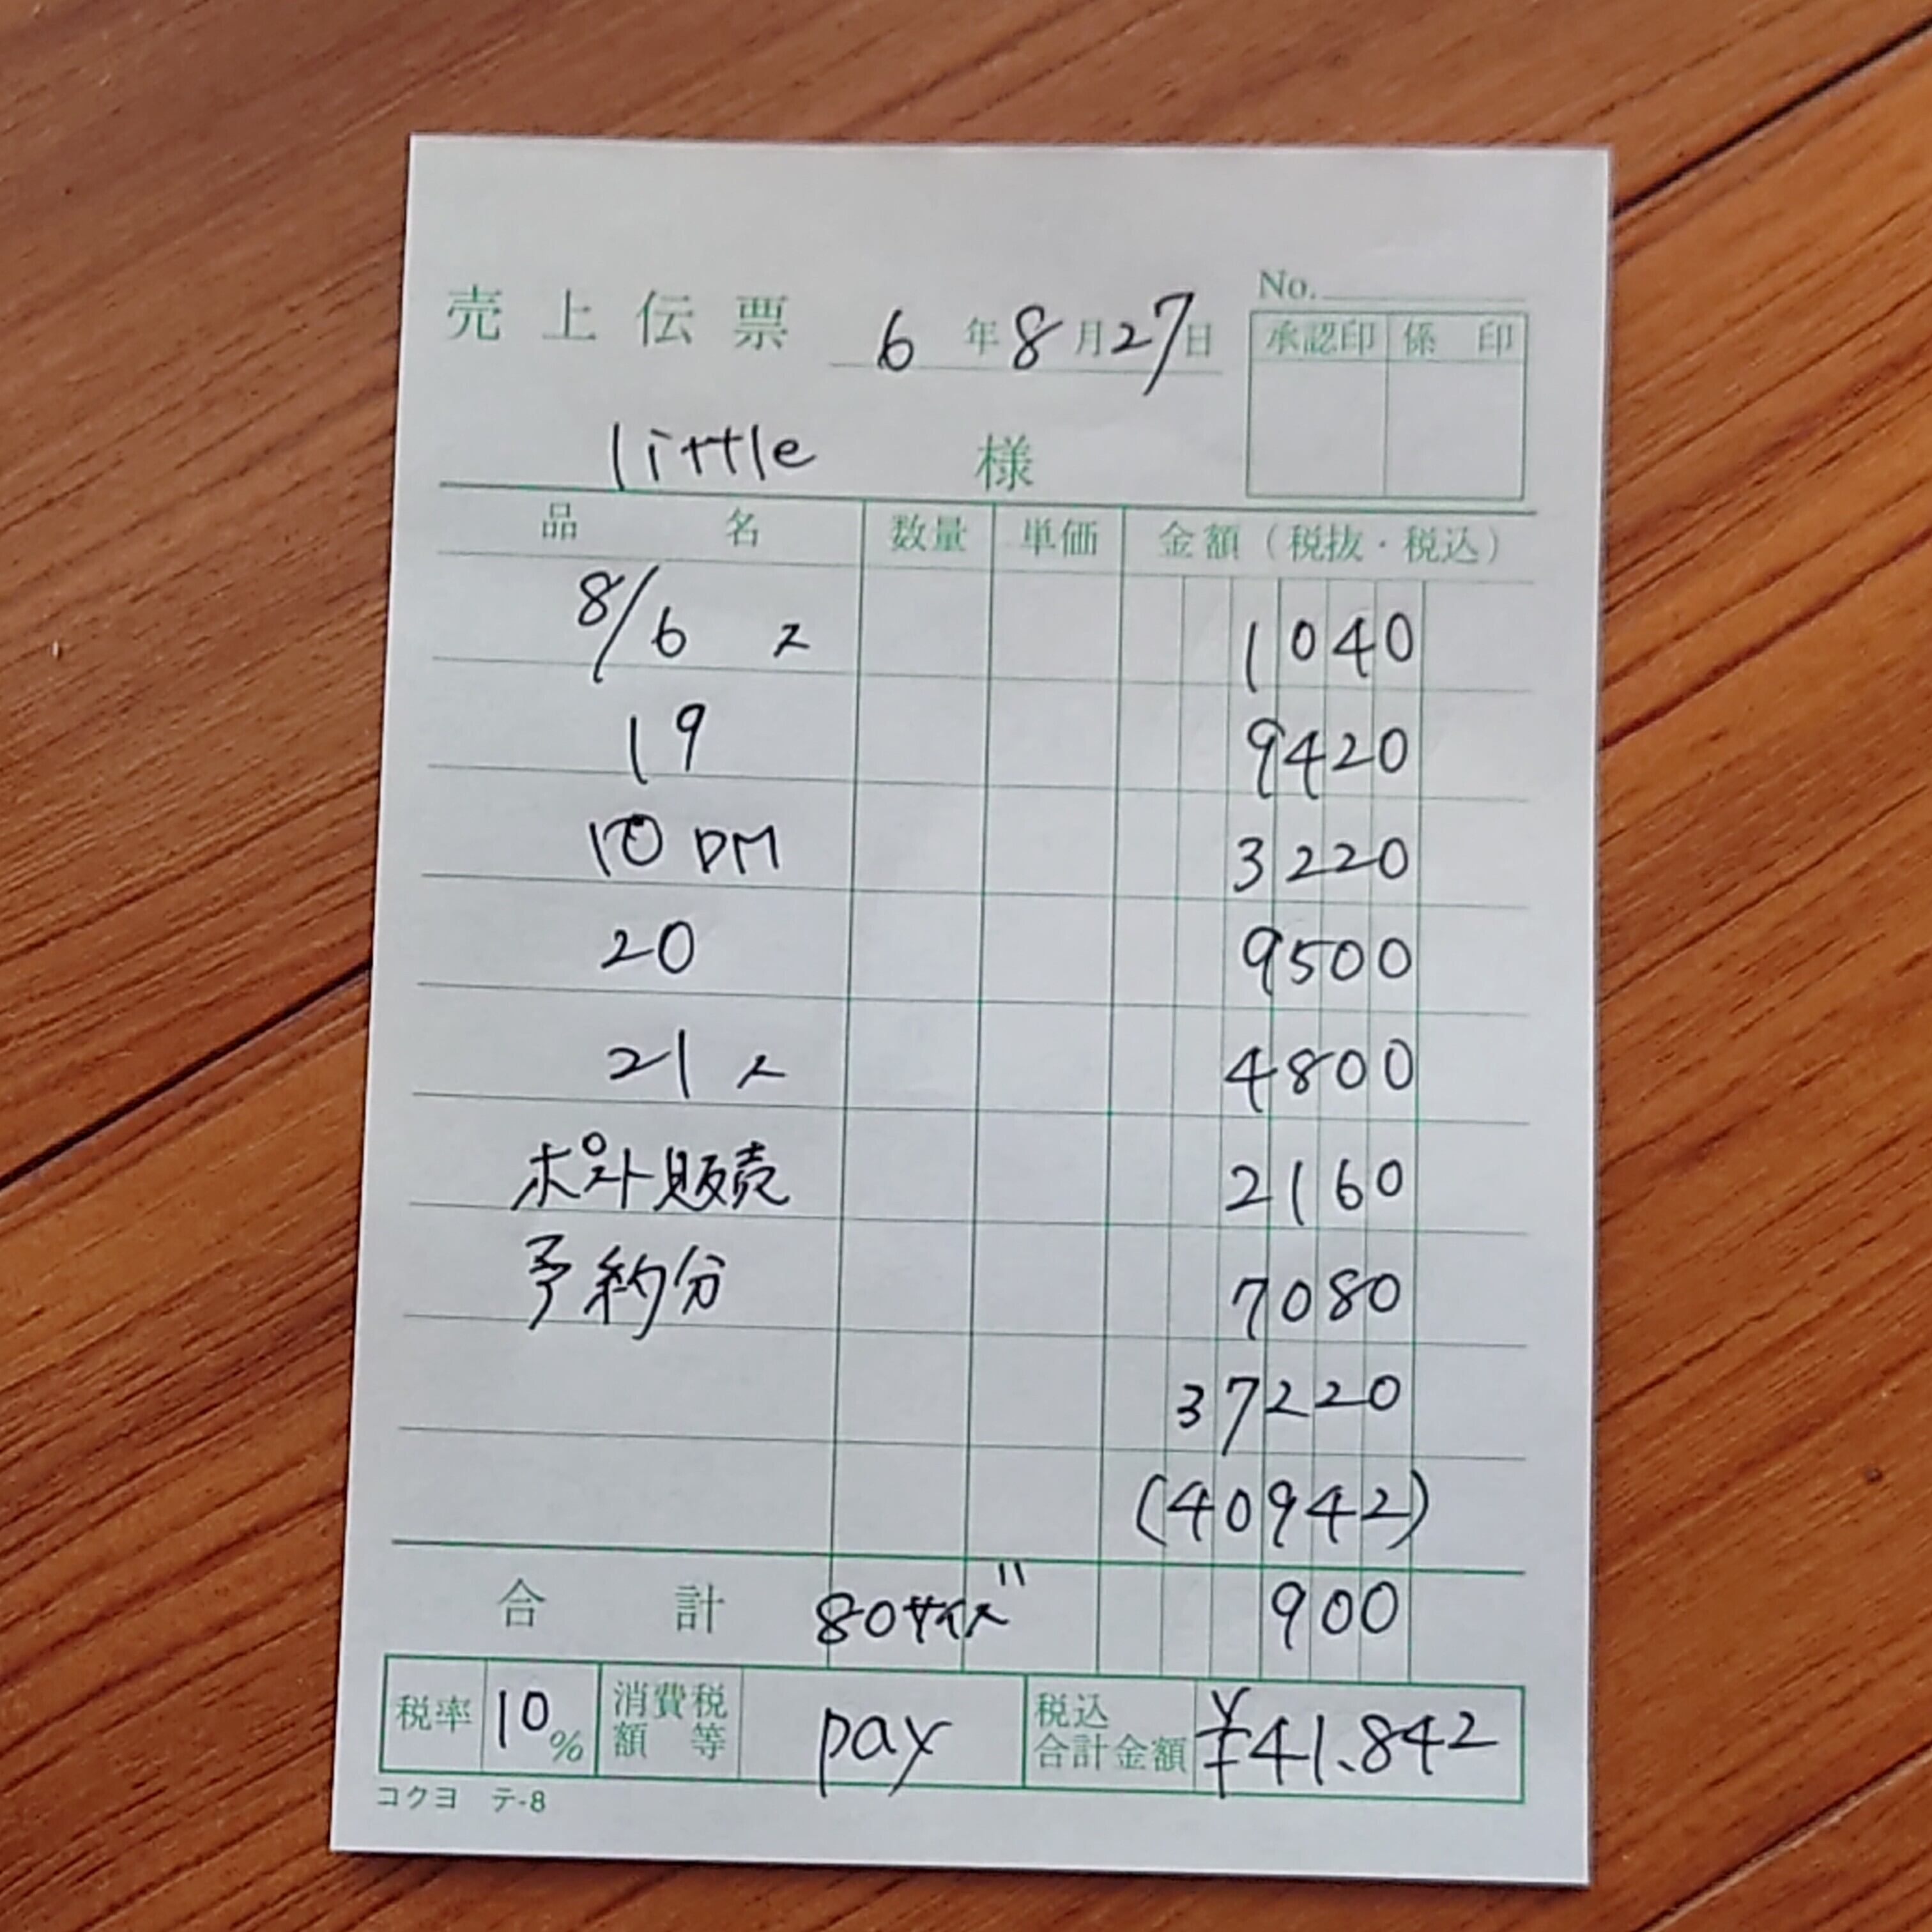 No.
売上伝票 6年8月27日
承認印 係印
little 様
品名 数量 単価 金額（税抜・税込）
8/6 ス 1040
19 9420
10 DM 3220
20 9500
21 ス 4800
ポスト販売 2160
予約分 7080
37220
(40942)
合計 80サイズ 900
税率 10% 消費税額等 pay 税込合計金額 ¥41.842
コクヨ テ-8